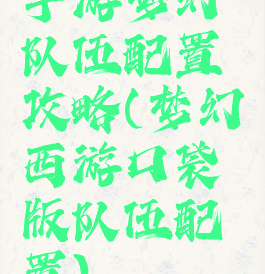 手游梦幻
队伍配置
攻略(梦幻
西游口袋
版队伍配
置)